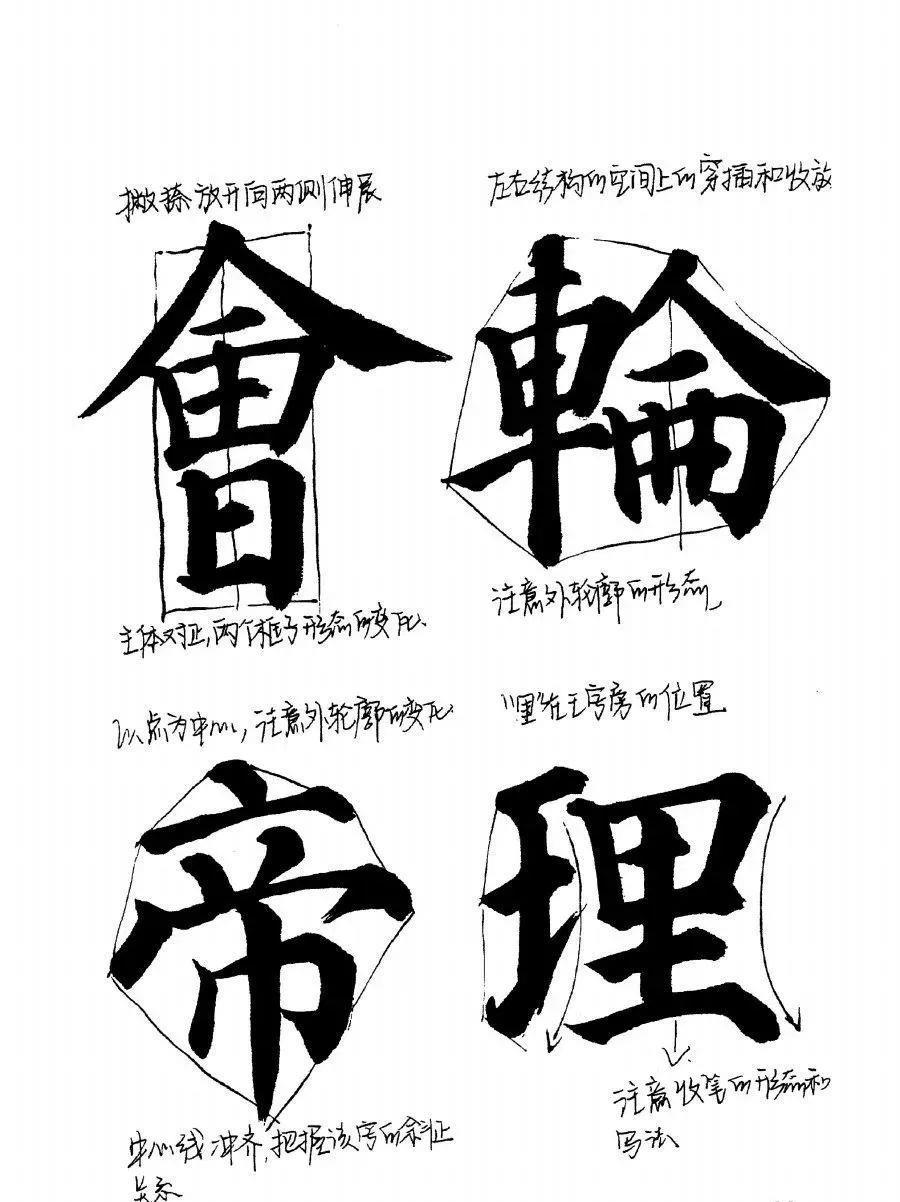 撇捺放开向两侧伸展
左右结构的空间上的穿插和收放
會
輪
主体对正,两个框子形态的变化
注意外轮廓的形态
以点为中心,注意外轮廓的变化
"里"在王字旁的位置
帝
理
中心线冲齐,把握该字的斜正
关系
注意收笔的形态和
写法